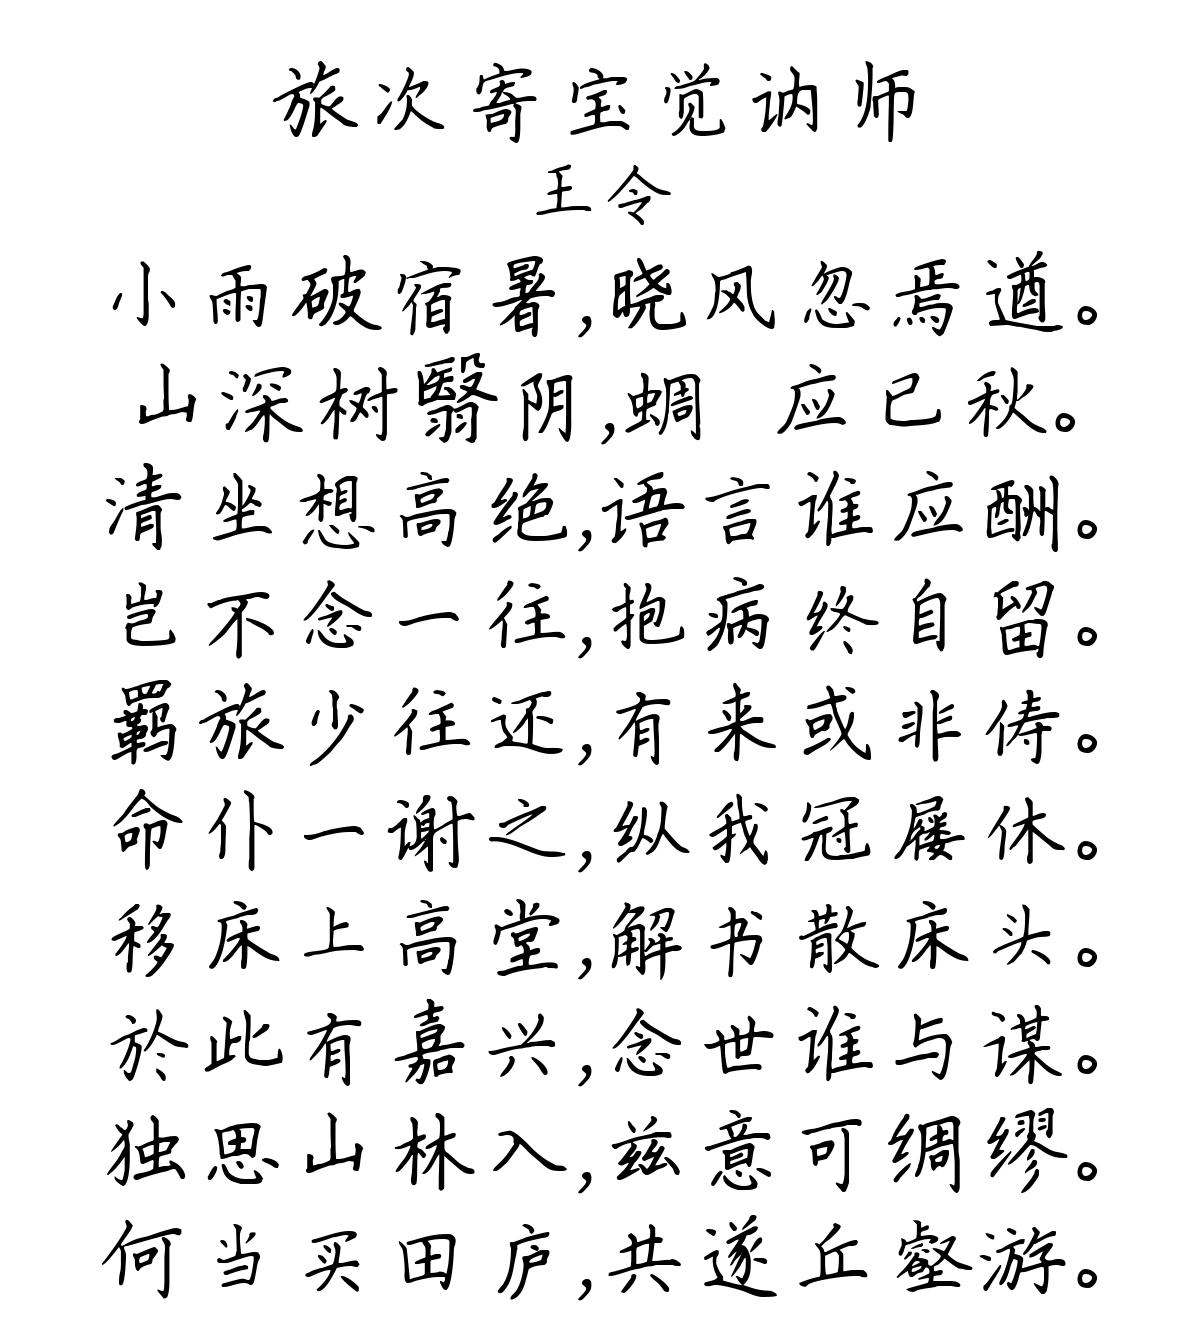 旅次寄宝觉讷师
王令
小雨破宿暑,晓风忽焉遒。
山深树翳阴,蜩 应已秋。
清坐想高绝,语言谁应酬。
岂不念一往,抱病终自留。
羁旅少往还,有来或非俦。
命仆一谢之,纵我冠屦休。
移床上高堂,解书散床头。
於此有嘉兴,念世谁与谋。
独思山林入,兹意可绸缪。
何当买田庐,共遂丘壑游。